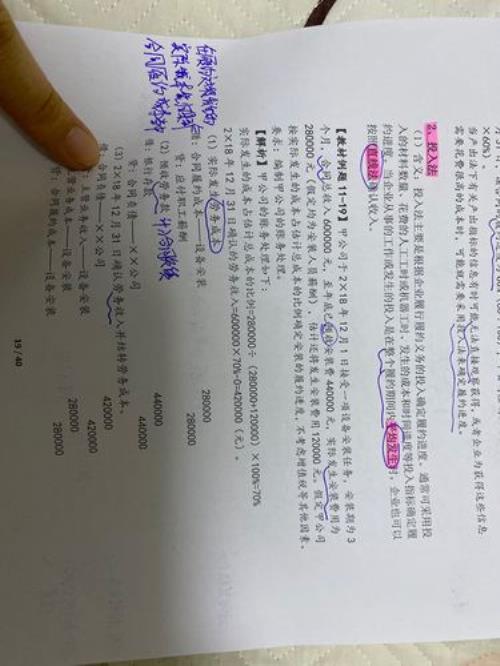 ×60%）。
当产出法下有关产出指标的信息有时可能无法直接观察获得，或者企业为获得这些信息
需要花费很高的成本时，可能就需要采用投入法来确定履约进度。
2、投入法
（1）含义：投入法主要是根据企业履行履约义务的投入确定履约进度。通常可采用投
入的材料数量、花费的人工工时或机器工时、发生的成本和时间进度等投入指标确定履
约进度。当企业从事的工作或发生的投入是在整个履约期间内平均发生时，企业也可以
按照直线法确认收入。
【教材例题 11-19】甲公司于 2×18 年 12 月 1 日接受一项设备安装任务，安装期为 3
个月，合同总收入 600000 元，至年底已预收安装费 440000 元，实际发生安装费用为
280000 元（假定均为安装人员薪酬），估计还将发生安装费用 120000 元。假定甲公司
按实际发生的成本占估计总成本的比例确定安装的履约进度，不考虑增值税等其他因素。
要求：编制甲公司的账务处理。
【解析】甲公司的账务处理如下：
实际发生的成本占估计总成本的比例=280000÷（280000+120000）×100%=70%
2×18 年 12 月 31 日确认的劳务收入=600000×70%-0=420000（元）。
（1）实际发生劳务成本
借：合同履约成本——设备安装 280000
贷：应付职工薪酬 280000
（2）预收劳务款
借：银行存款 440000
贷：合同负债——××公司 440000
（3）2×18 年 12 月 31 日确认劳务收入并结转劳务成本。
借：合同负债——××公司 420000
贷：主营业务收入——设备安装 420000
借：主营业务成本——设备安装 280000
贷：合同履约成本——设备安装 280000
19 / 40